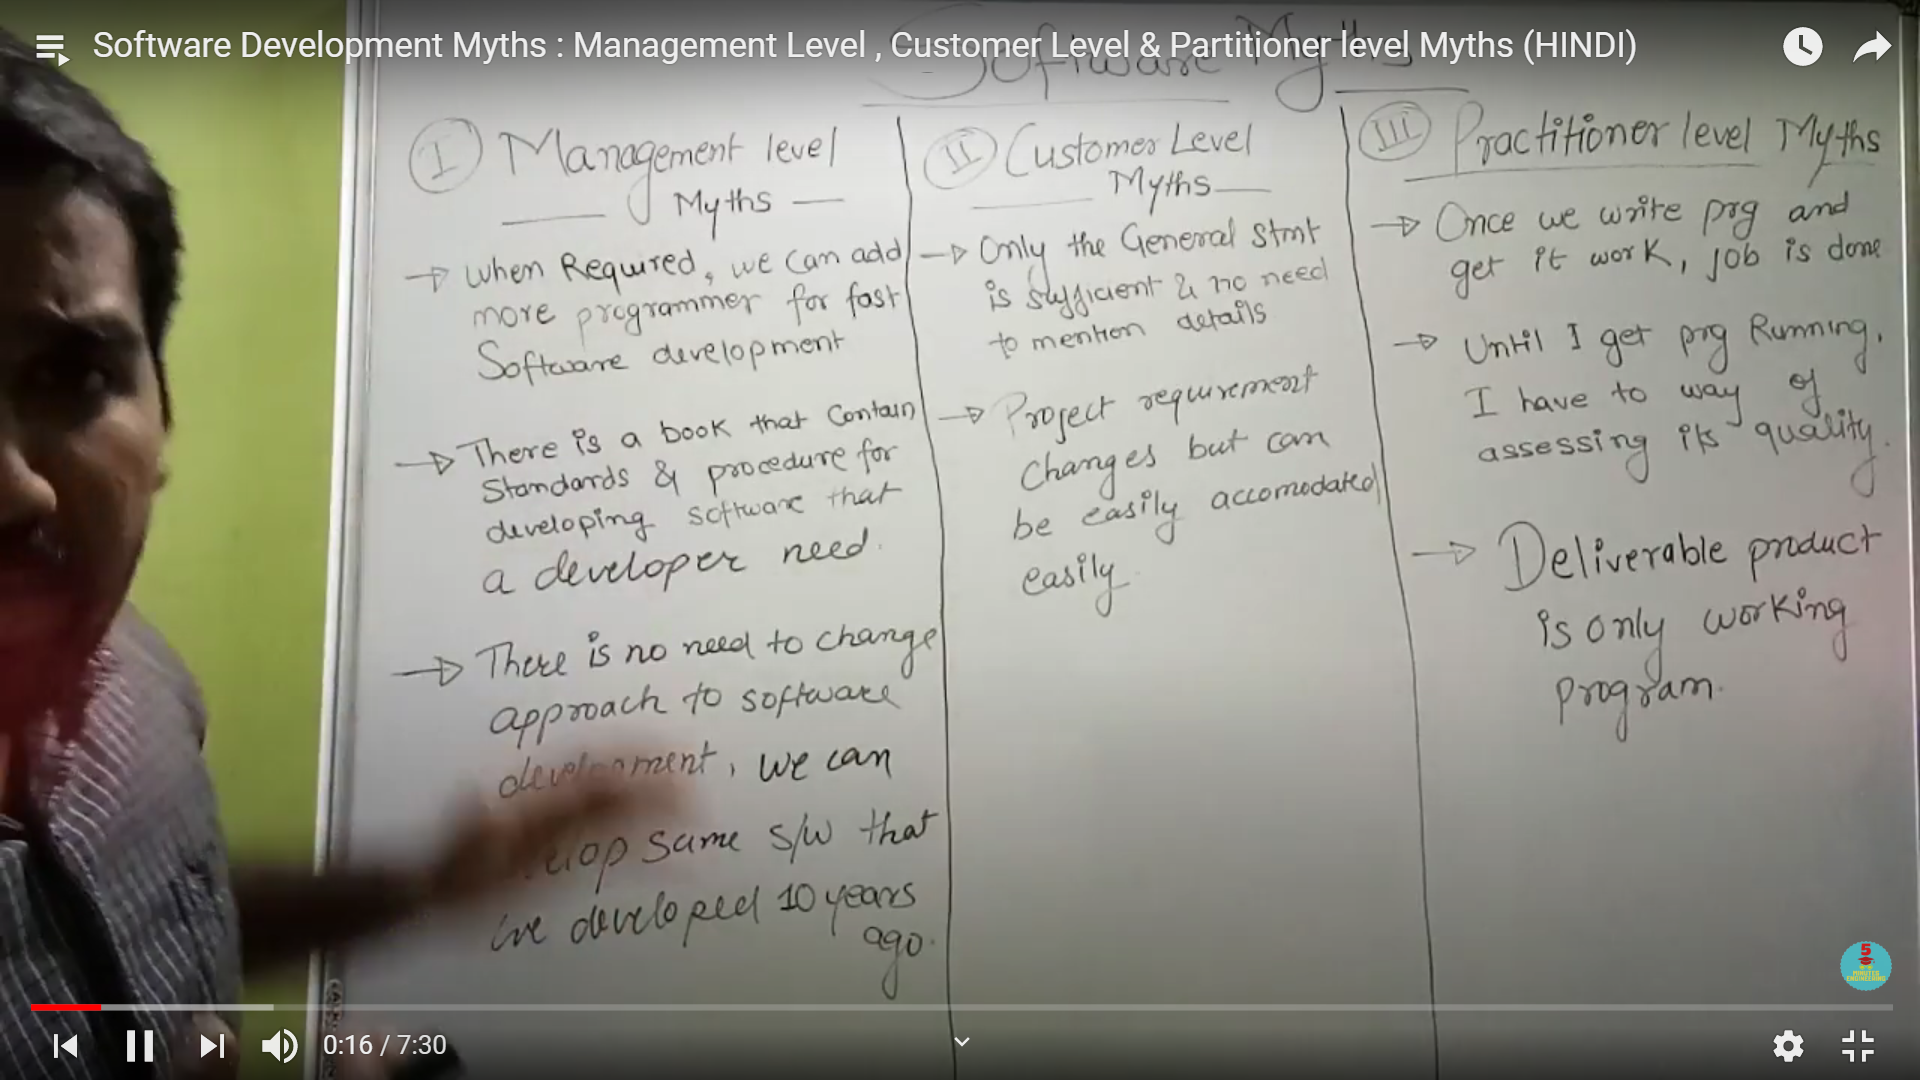 Software Development Myths : Management Level , Customer Level & Partitioner level Myths (HINDI)
Software Myths
I Management level
Myths
→ When Required, we can add
more programmer for fast
Software development
→ There is a book that contain
Standards & procedure for
developing software that
a developer need.
→ There is no need to change
approach to software
development, we can
same s/w that
we developed 10 years
ago.
II Customer Level
Myths
→ Only the General Stmt
is sufficient & no need
to mention details
→ Project requirement
changes but can
be easily accomodated
easily
III Practitioner level Myths
→ Once we write prg and
get it work, job is done
→ Until I get prg Running,
I have to way of
assessing its quality.
→ Deliverable product
is only working
program.
5
MINUTES
ENGINEERING
0:16 / 7:30